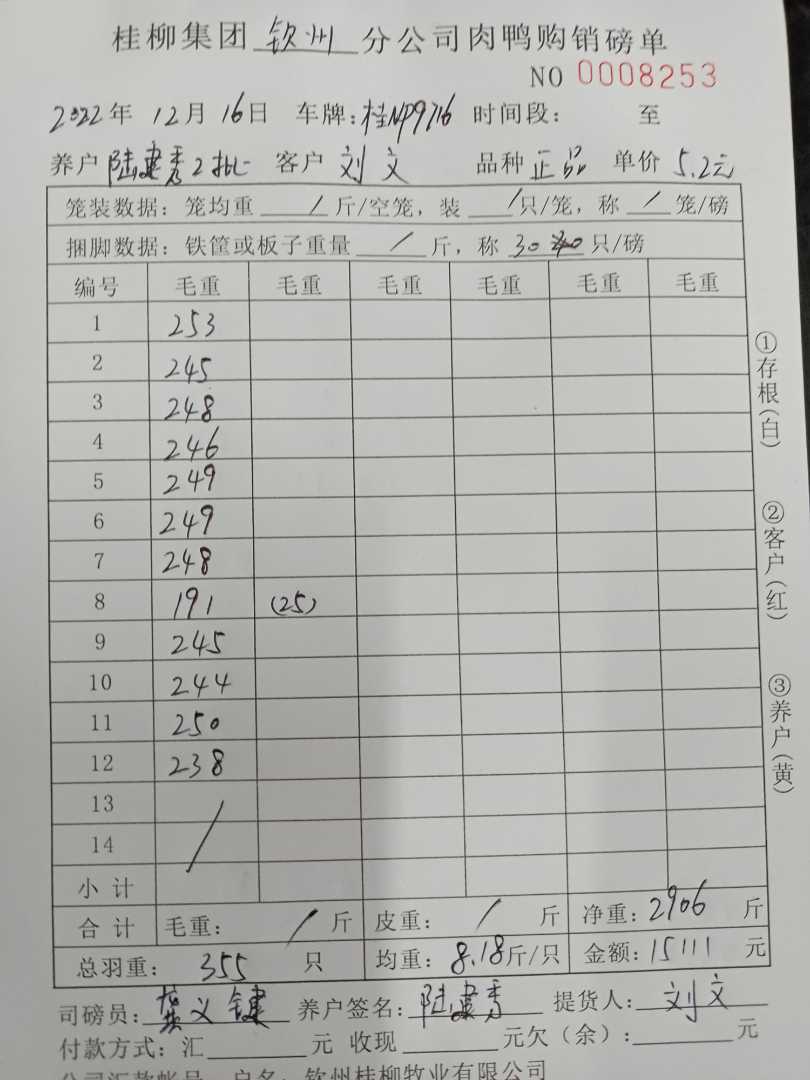 桂柳集团 钦州 分公司肉鸭购销磅单
NO 0008253
2022年 12月 16日 车牌:桂NP9716 时间段: 至
养户 陆建秀2批 客户 刘文 品种 正品 单价 5.2元
笼装数据:笼均重 / 斤/空笼,装 / 只/笼,称 / 笼/磅
捆脚数据:铁筐或板子重量 / 斤,称 30 只/磅
编号 毛重 毛重 毛重 毛重 毛重 毛重
1 253
2 245
3 248
4 246
5 249
6 249
7 248
8 191 (25)
9 245
10 244
11 250
12 238
13 /
14
小计
合计 毛重: / 斤 皮重: / 斤 净重:2906 斤
总羽重: 355 只 均重:8.18斤/只 金额:15111 元
司磅员:龚义键 养户签名:陆建秀 提货人:刘文
付款方式:汇 元 收现 元欠(余): 元
公司汇款帐号 户名:钦州桂柳牧业有限公司
①存根(白)
②客户(红)
③养户(黄)